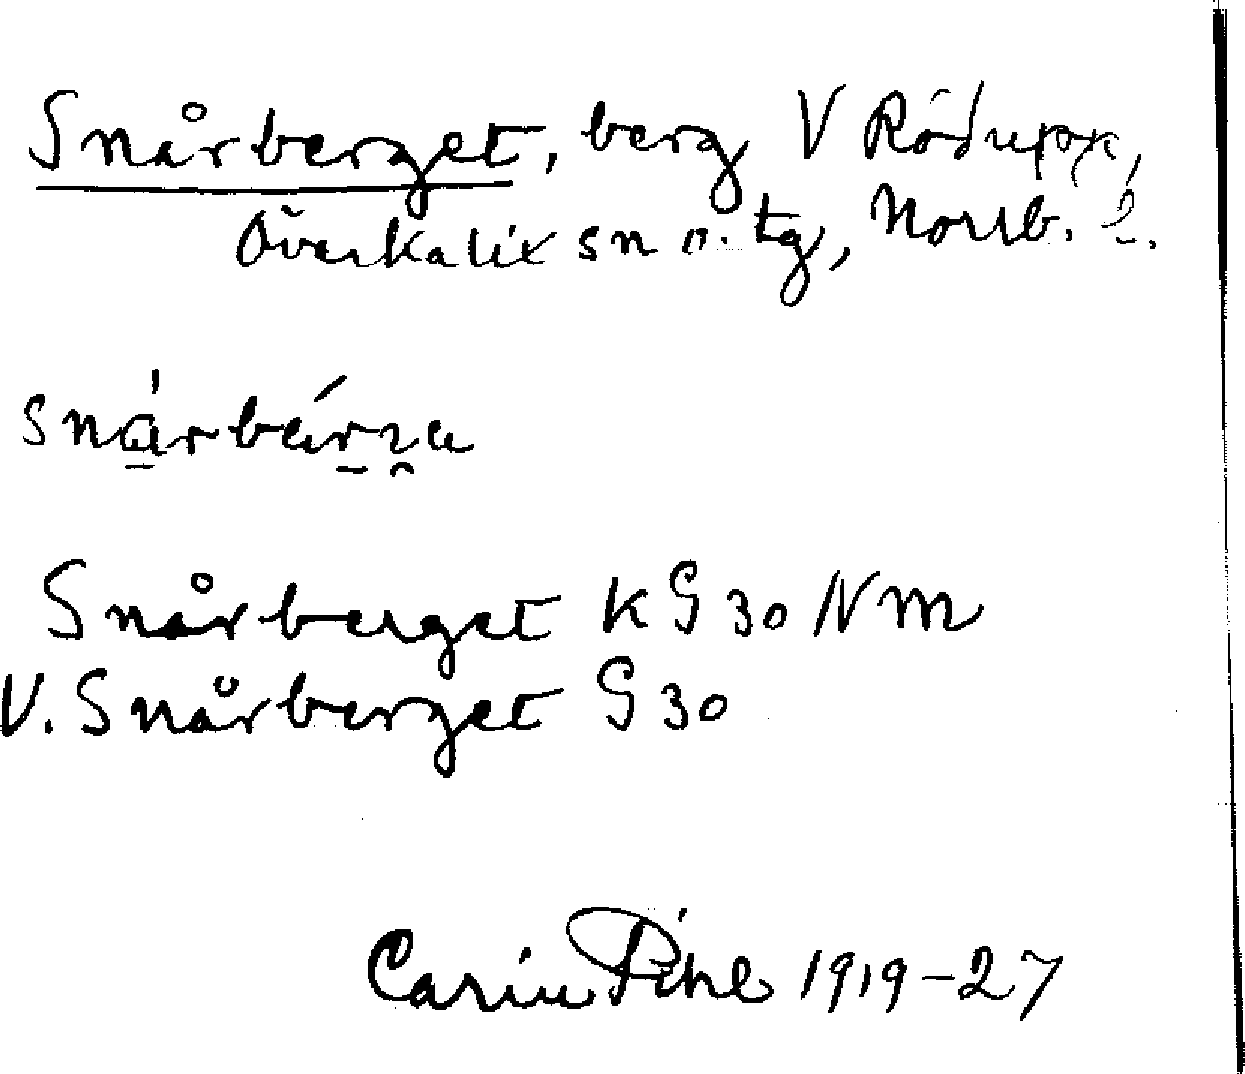 Snårberget, berg V Rödupp,
Överkalix sn o. tg, Norrb. l.
snárbárza
Snårberget KG30NM
V. Snårberget G30
Carin Pihl 1919-27